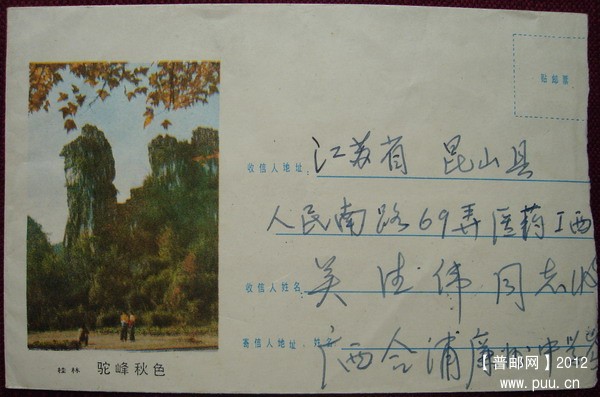 贴邮票
收信人地址: 江苏省 昆山县
人民南路69弄医药工西
收信人姓名: 吴 伟同志收
寄信人地址: 姓名 广西合浦廉州中学
桂林 驼峰秋色
【普邮网】2012
www.puu.cn